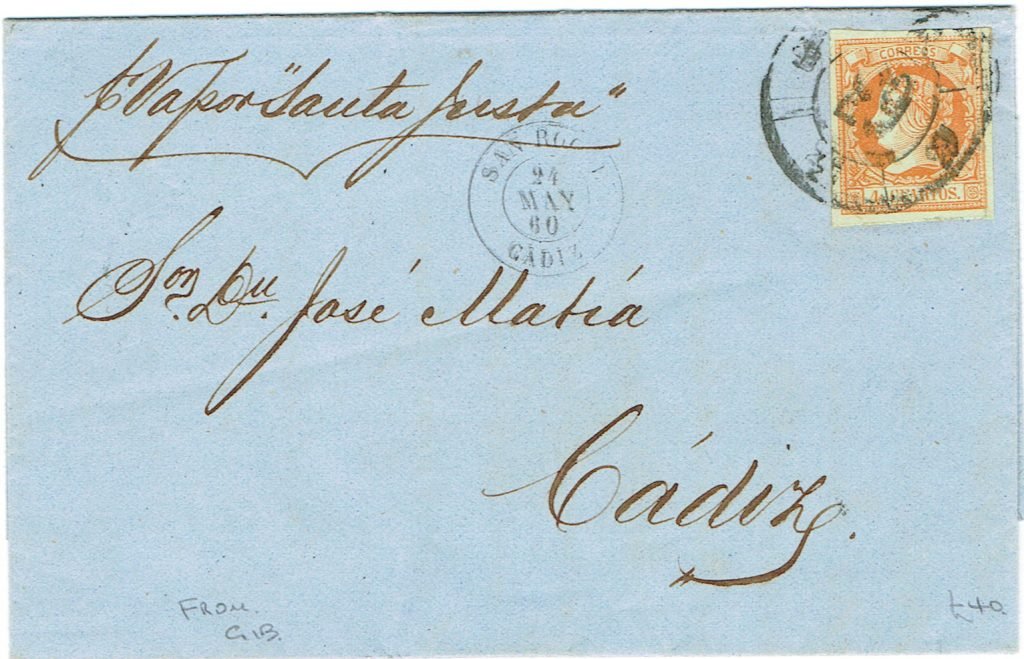 p Vapor "Santa Justa"
CORREOS
4 CUARTOS.
SAN ROQUE
24
MAY
60
CADIZ
Sor. Dn. José Matiá
Cádiz.
FROM.
GIB.
£40.